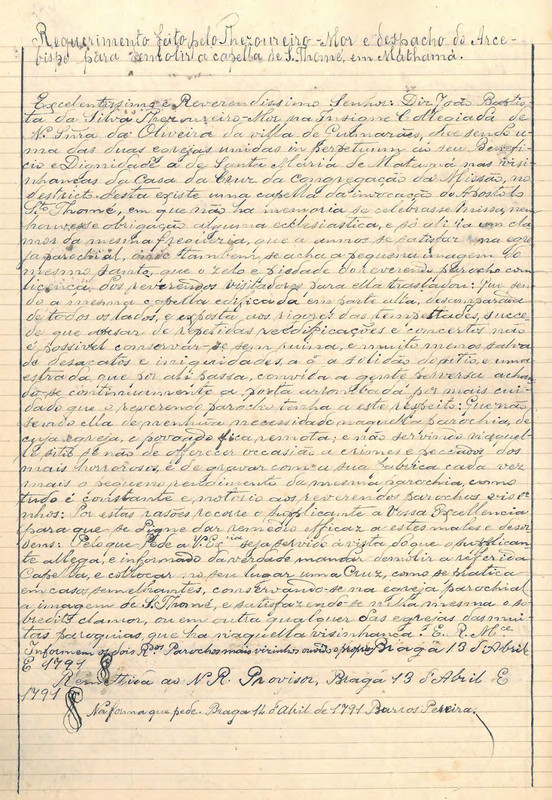 Requerimento feito pelo Thezoureiro-Mor e despacho do Arce-
bispo para demolir a capella de S. Thomé, em Mathamá.
Excelentissimo e Reverendissimo Senhor: Diz João Baptis-
ta da Silva Thezoureiro-Mor na Insigne Collegiada de
N. Snra da Oliveira da villa de Guimarães, que sendo u-
ma das duas egrejas unidas in perpetuum ao seu Benefi-
cio e Dignidade a de Santa Maria de Matamá nas visi-
nhanças da Casa da Cruz da Congregação da Missão, no
districto desta existe uma capella da invocação do Apostolo
S. Thomé, em que não ha memoria se celebrasse Missa, nem
houvesse obrigação alguma ecclesiastica, e só ali ia um cla-
mor da mesma freguezia, que a annos se satisfaz na egre-
ja parochial, onde tambem se acha a pequena imagem do
mesmo santo, que o zelo e piedade do reverendo parocho com
licença dos reverendos visitadores para ella trasladou: Que sen-
do a mesma capella edificada em parte alta, desamparada
de todos os lados, e exposta aos rigores das tempestades, succe-
de que apesar de repetidas reedificações e concertos não
é possivel conservar-se sem ruina, e muito menos salva
de desacatos e iniquidades, a q a solidão do sitio, e uma
estrada que por ali passa, convida a gente perversa achan-
do-se continuamente a porta arrombada por mais cui-
dado que o reverendo parocho tenha a este respeito: Que não
sendo ella de nenhuma necessidade naquella parochia, de
cuja egreja, e povoado fica remota; e não servindo naquel-
le sitio se não de offerecer occasião a crimes e peccados dos
mais horrorosos, e de gravar com a sua fabrica cada vez
mais o pequeno rendimento da mesma parochia, como
tudo é constante e notorio aos reverendos parochos visi-
nhos: Por estas rasões recorre o supplicante a Vossa Excellencia
para que se digne dar remedio efficaz a estes males e desor-
dens: Pelo que Pede a V. Ex.cia seja servido á vista do que o supplican-
te allega, e informado da verdade mandar demolir a referida
Capella, e collocar no seu lugar uma Cruz, como se pratica
em casos semelhantes, conservando-se na egreja parochial
a imagem de S. Thomé, e satisfazendo-se nella mesma o so-
bredito clamor, ou em outra qualquer das egrejas das mui-
tas paroquias, que ha naquella visinhança. E. R. M.ce
Informem os dois R.dos Parochos mais visinhos ouvido o proprio Braga 13 d'Abril
E 1791
Remettida ao N. R. Provisor, Braga 13 d'Abril E
1791
Na forma que pede. Braga 14 d'Abril de 1791 Barros Pereira.